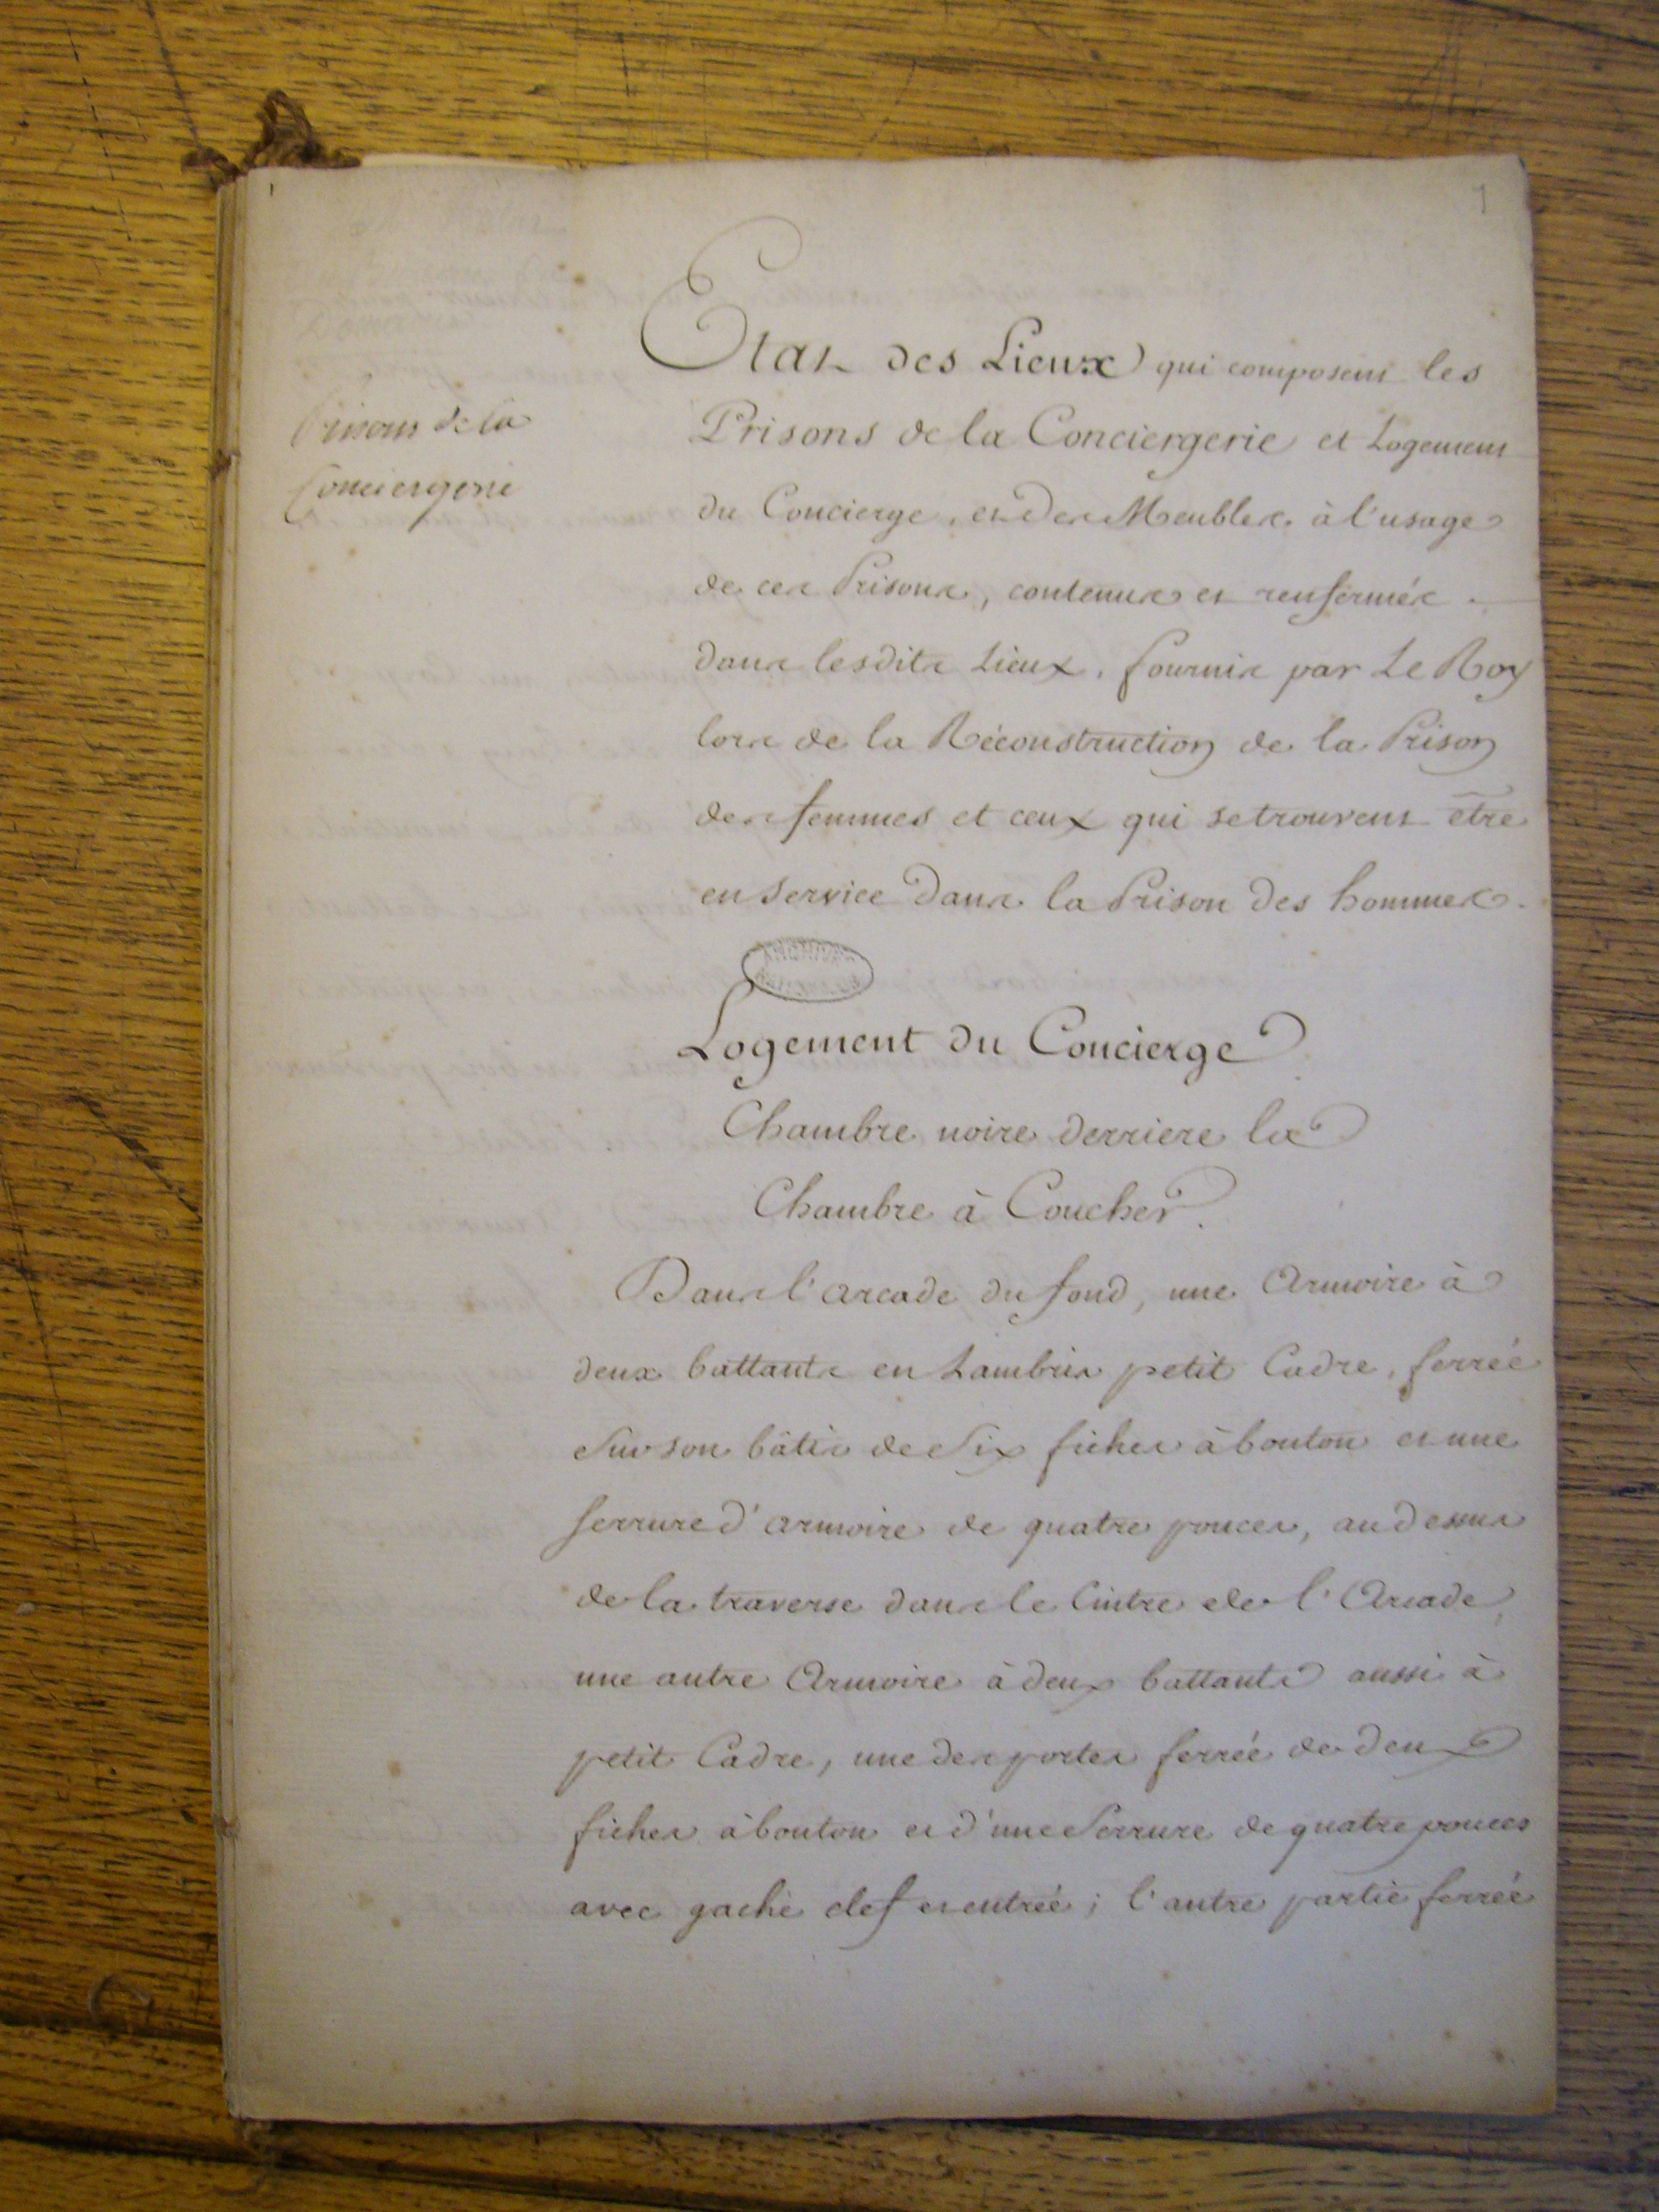 1
Prisons de la
Conciergerie
Etat des Lieux qui composent les
Prisons de la Conciergerie et Logement
du Concierge, et des Meubles à l'usage
de ces Prisons, contenus et renfermés
dans lesdits Lieux, fournis par Le Roy
lors de la Réconstruction de la Prison
des femmes et ceux qui se trouvent être
en service dans la Prison des hommes.
Logement du Concierge
Chambre noire derriere la
Chambre à Coucher.
Dans l'arcade du fond, une Armoire à
deux battants en Lambris petit Cadre, ferrée
sur son bâtis de Six fiches à bouton et une
serrure d'armoire de quatre pouces, au dessus
de la traverse dans le Cintre de l'Arcade,
une autre Armoire à deux battants aussi à
petit Cadre, une des portes ferrée de deux
fiches à bouton et d'une Serrure de quatre pouces
avec gache clef et entrée ; l'autre partie ferrée